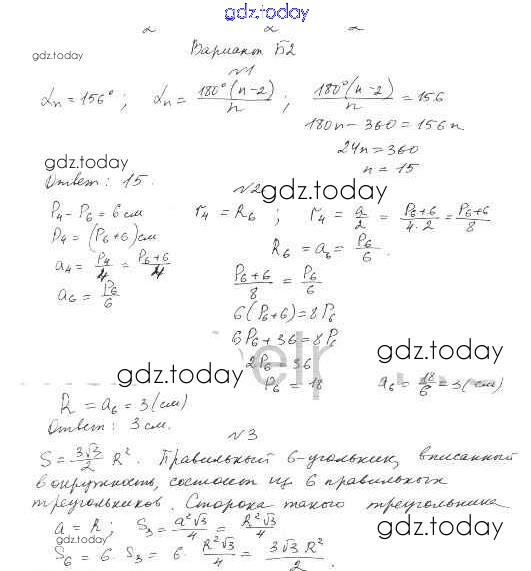 gdz.today
Вариант Б2
gdz.today
№1
αn = 156°; αn = 180°(n-2)/n; 180°(n-2)/n = 156
180n - 360 = 156n
24n = 360
n = 15
gdz.today
Ответ: 15.
№2
gdz.today
P4 - P6 = 6 см
r4 = R6; r4 = a/2 = P6+6/4·2 = P6+6/8
P4 = (P6+6) см
R6 = a6 = P6/6.
a4 = P4/4 = P6+6/4
P6+6/8 = P6/6
a6 = P6/6
6(P6+6) = 8P6
6P6 + 36 = 8P6
gdz.today
2P6 = 36
gdz.today
P6 = 18
a6 = 18/6 = 3 (см)
R = a6 = 3 (см)
Ответ: 3 см.
gdz.today
№3
S = 3√3/2 R². Правильный 6-угольник, вписанный
в окружность, состоит из 6 правильных
треугольников. Сторона такого треугольника
a = R; S3 = a²√3/4 = R²√3/4
gdz.today
gdz.today
S6 = 6·S3 = 6·R²√3/4 = 3√3 R²/2.